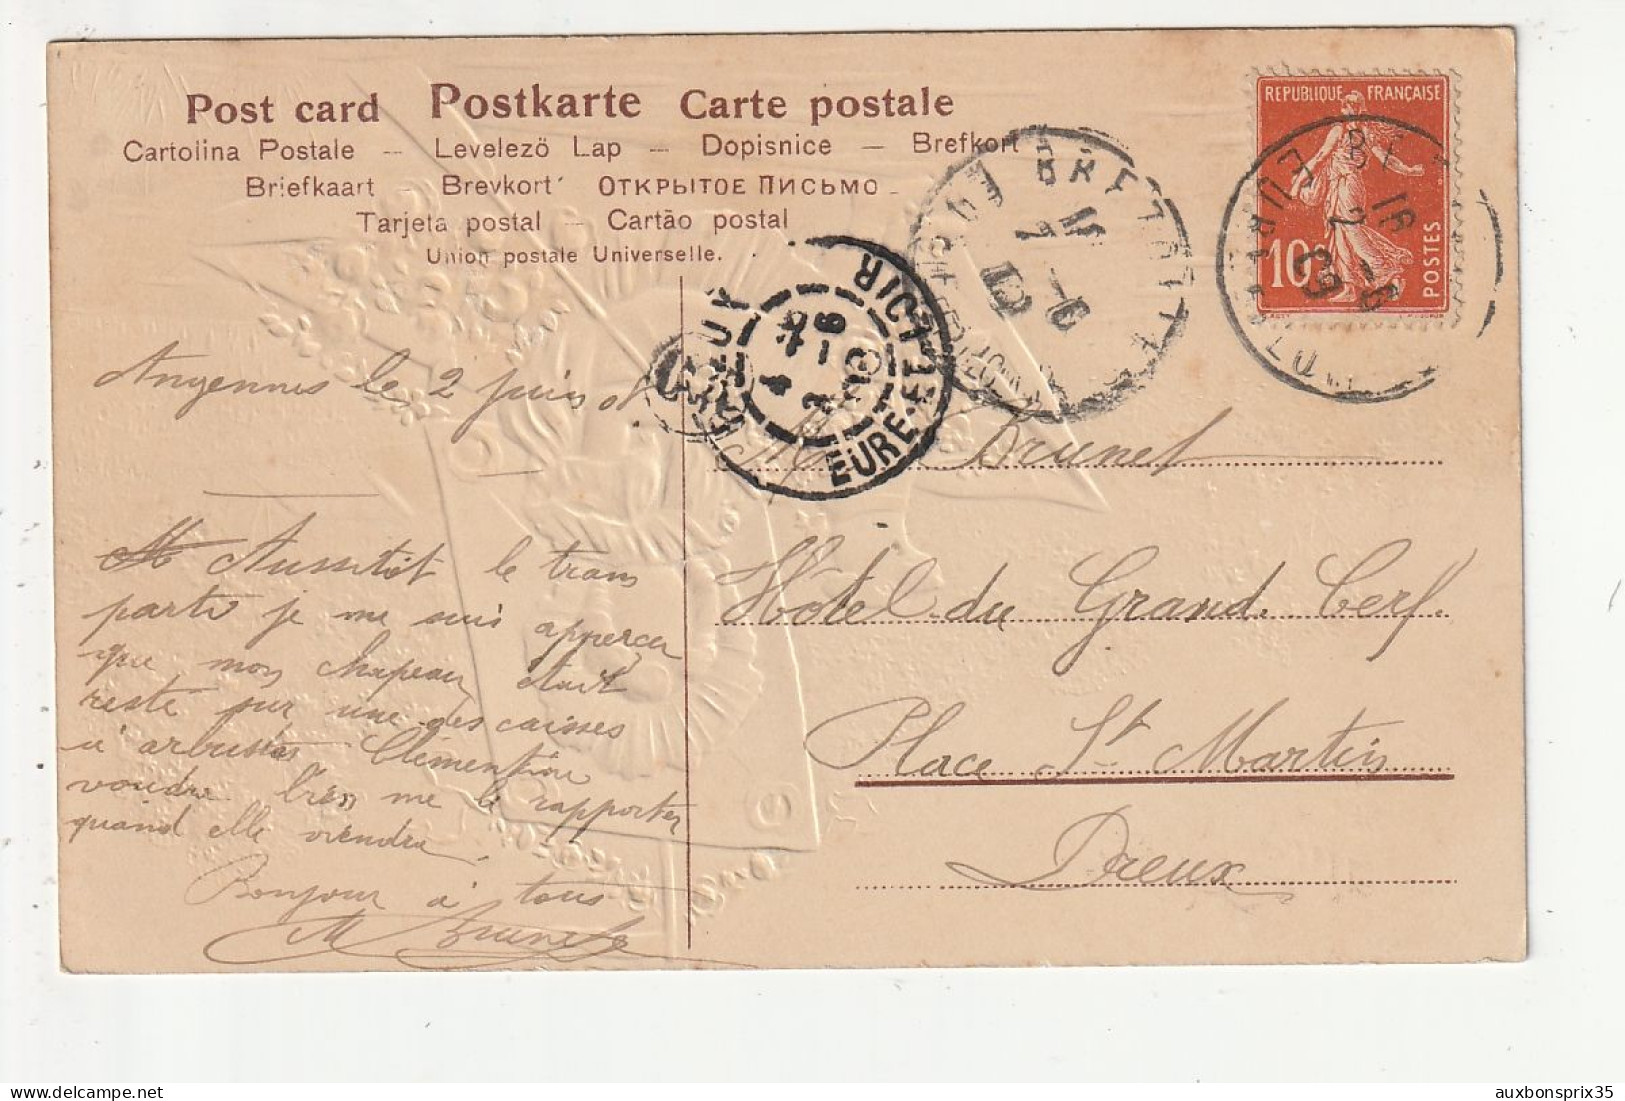 Post card Postkarte Carte postale
Cartolina Postale – Levelezö Lap – Dopisnice – Brefkort
Briefkaart – Brevkort – ОТКРЫТОЕ ПИСЬМО –
Tarjeta postal – Cartão postal
Union postale Universelle.
REPUBLIQUE FRANÇAISE
10c
POSTES
DREUX
EURE-ET-LOIR
Angennes le 2 juin 08
Aussitôt le train
parti je me suis apperçu
que mon chapeau était
resté sur une des caisses
à arbustes Clémentine
voudra bien me le rapporter
quand elle viendra.
Bonjour à tous
M Brunet
Brunet
Hôtel du Grand Cerf.
Place St Martin
Dreux
auxbonsprix35